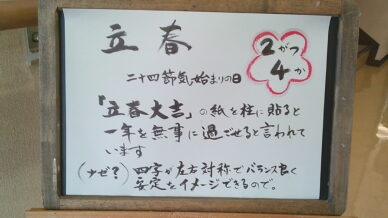 立春
2がつ
4か
二十四節気始まりの日
「立春大吉」の紙を柱に貼ると
一年を無事に過ごせると言われて
います
(なぜ?)四字が左右対称でバランス良く
安定なイメージできるので。